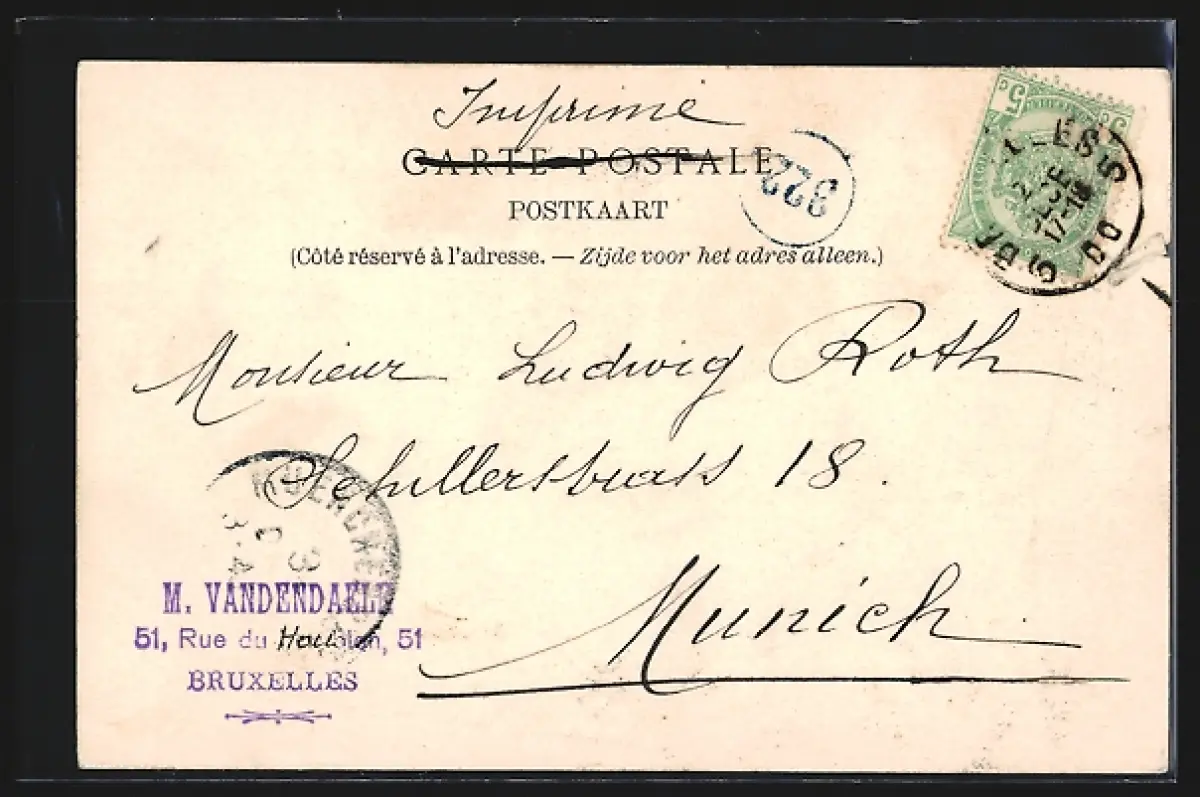 Imprimé
CARTE POSTALE
POSTKAART
(Côté réservé à l'adresse. — Zijde voor het adres alleen.)
322
5 c 5 c
17-18
Monsieur Ludwig Roth
Schillerstrass 18.
Munich
M. VANDENDAELE
51, Rue du Houblon, 51
BRUXELLES